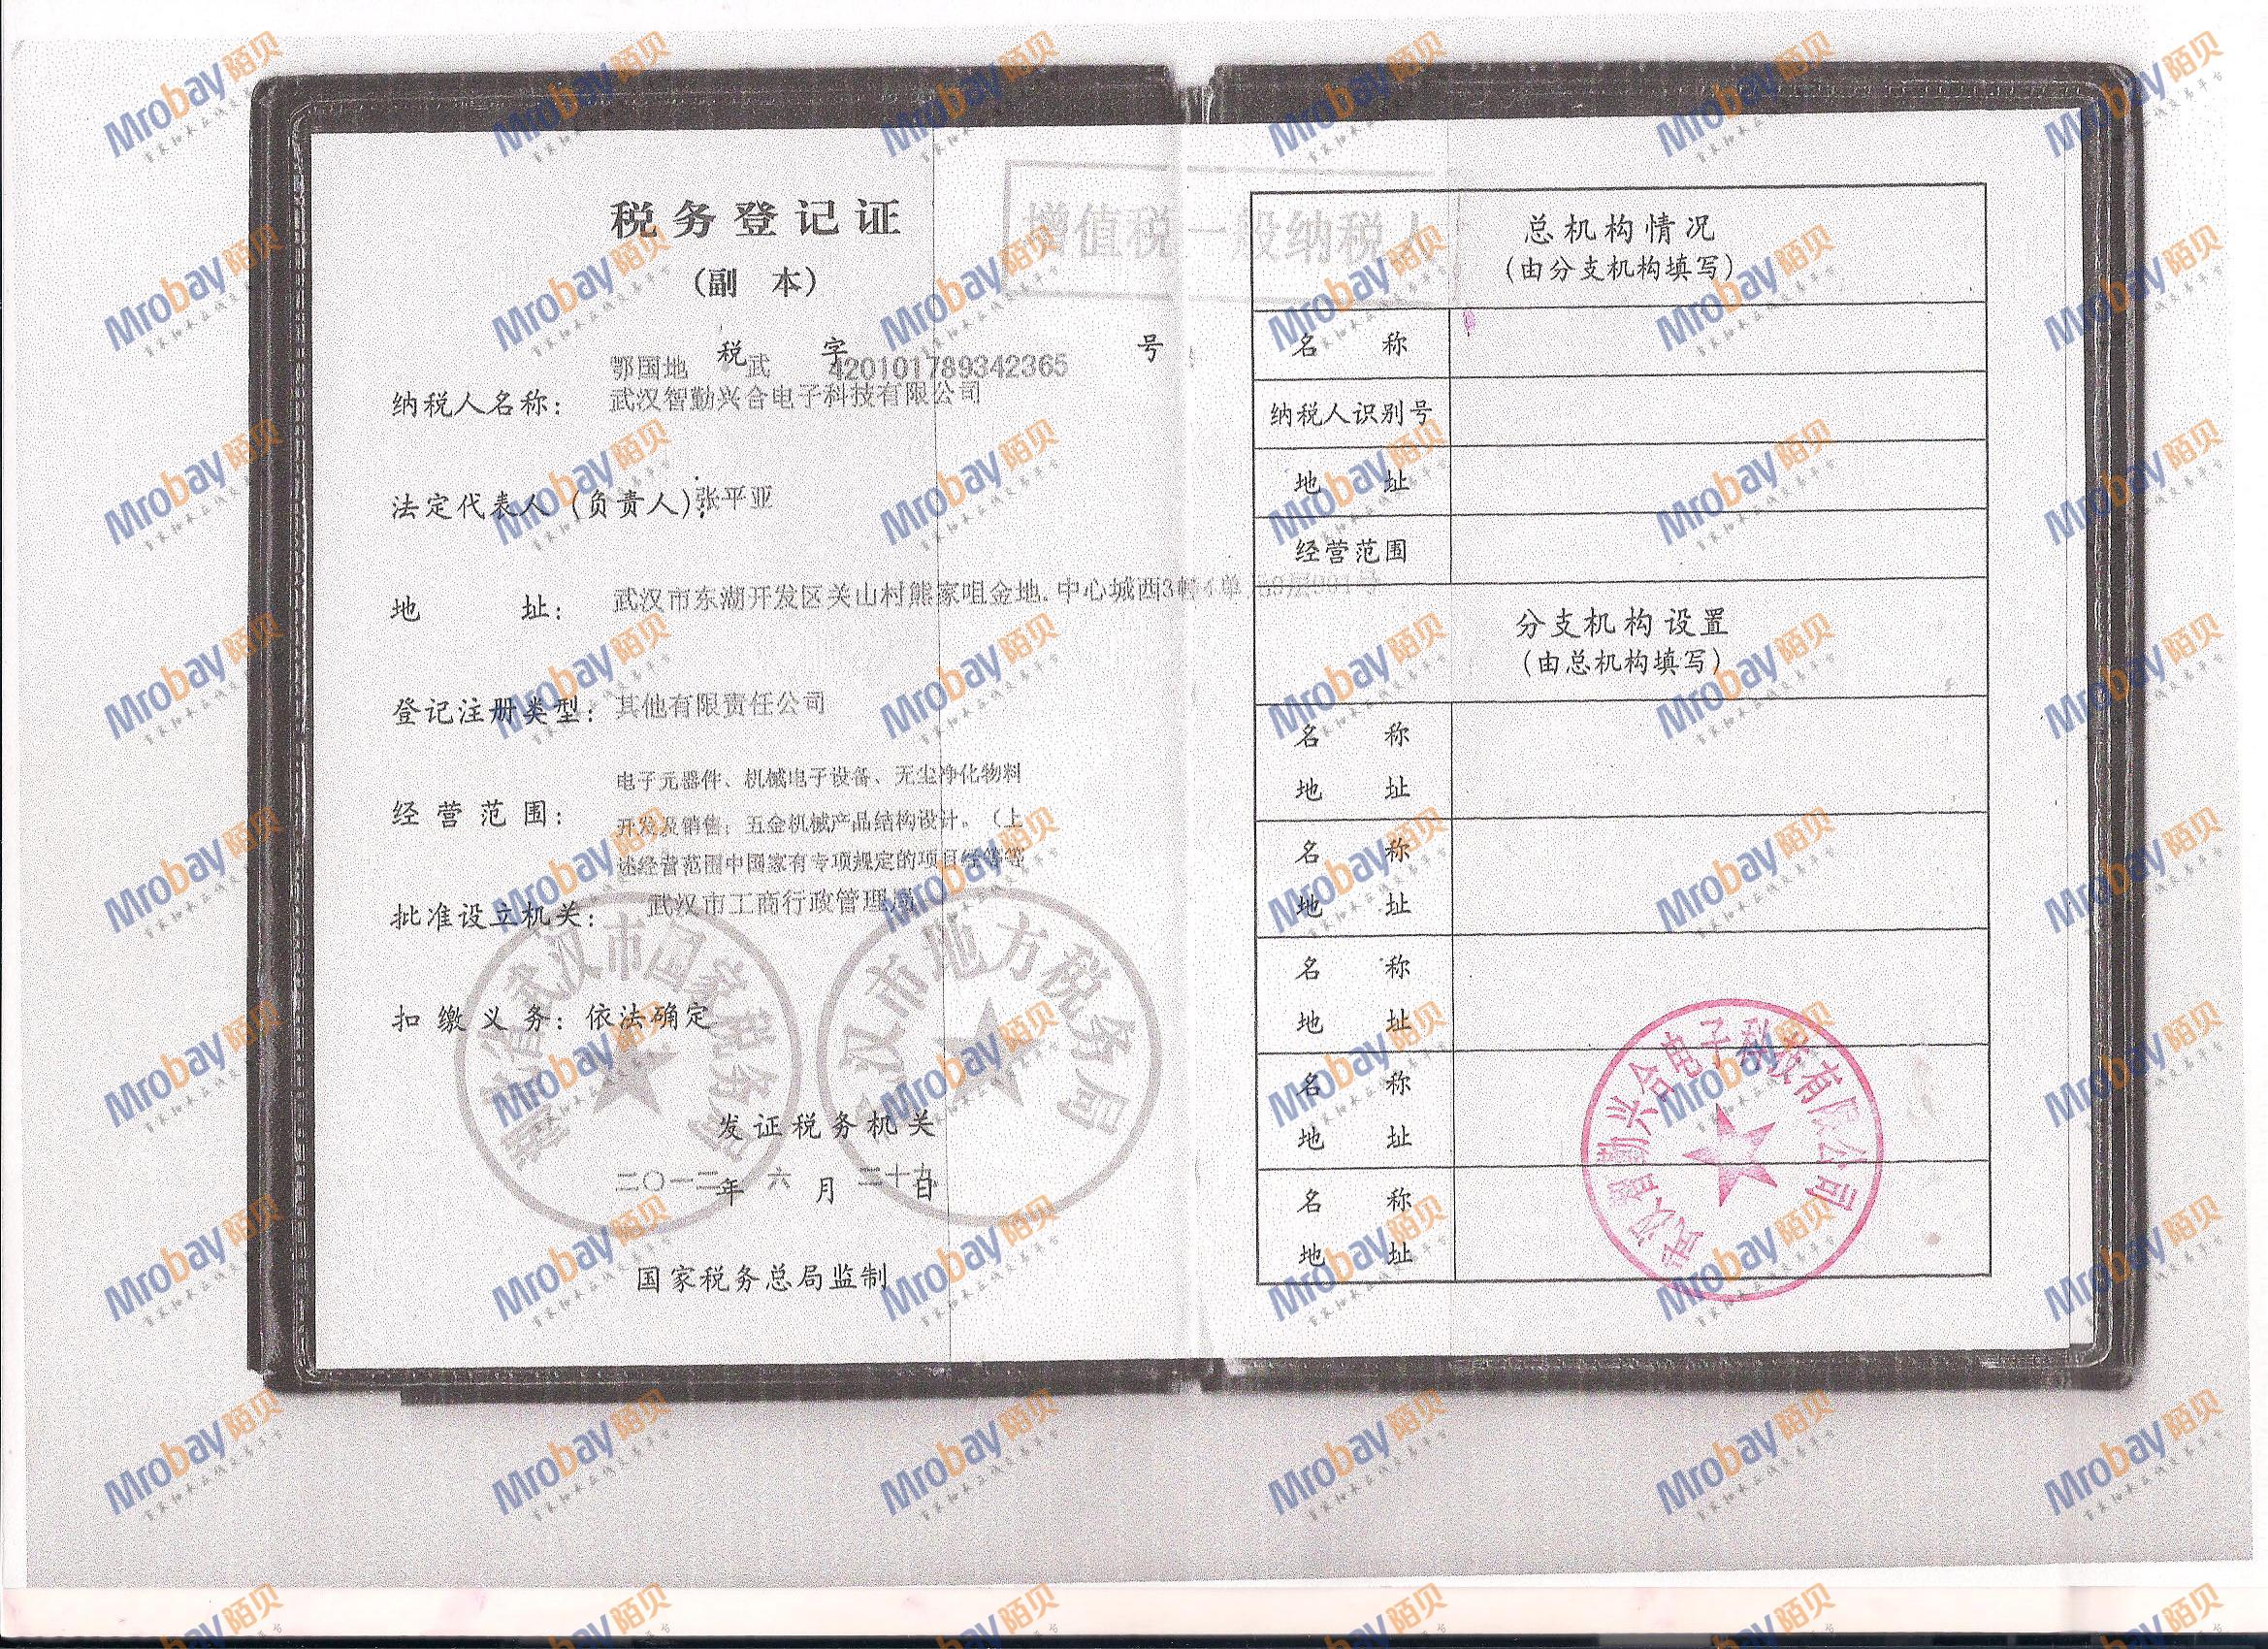 税务登记证
(副 本)
增值税一般纳税人
鄂国地 税 武 字 420101789342365 号
纳税人名称: 武汉智勤兴合电子科技有限公司
法定代表人 (负责人): 张平亚
地 址: 武汉市东湖开发区关山村熊家咀金地.中心城西3幢4单 层
登记注册类型: 其他有限责任公司
经营范围: 电子元器件、机械电子设备、无尘净化物料
开发及销售; 五金机械产品结构设计。(上
述经营范围中国家有专项规定的项目经等等
批准设立机关: 武汉市工商行政管理局
扣缴义务: 依法确定
湖北省武汉市国家税务局
武汉市地方税务局
发证税务机关
二〇一二年 六 月 二十九日
国家税务总局监制
总机构情况
(由分支机构填写)
名 称
纳税人识别号
地 址
经营范围
分支机构设置
(由总机构填写)
名 称
地 址
名 称
地 址
名 称
地 址
名 称
地 址
名 称
地 址
武汉智勤兴合电子科技有限公司
Mrobay陌贝